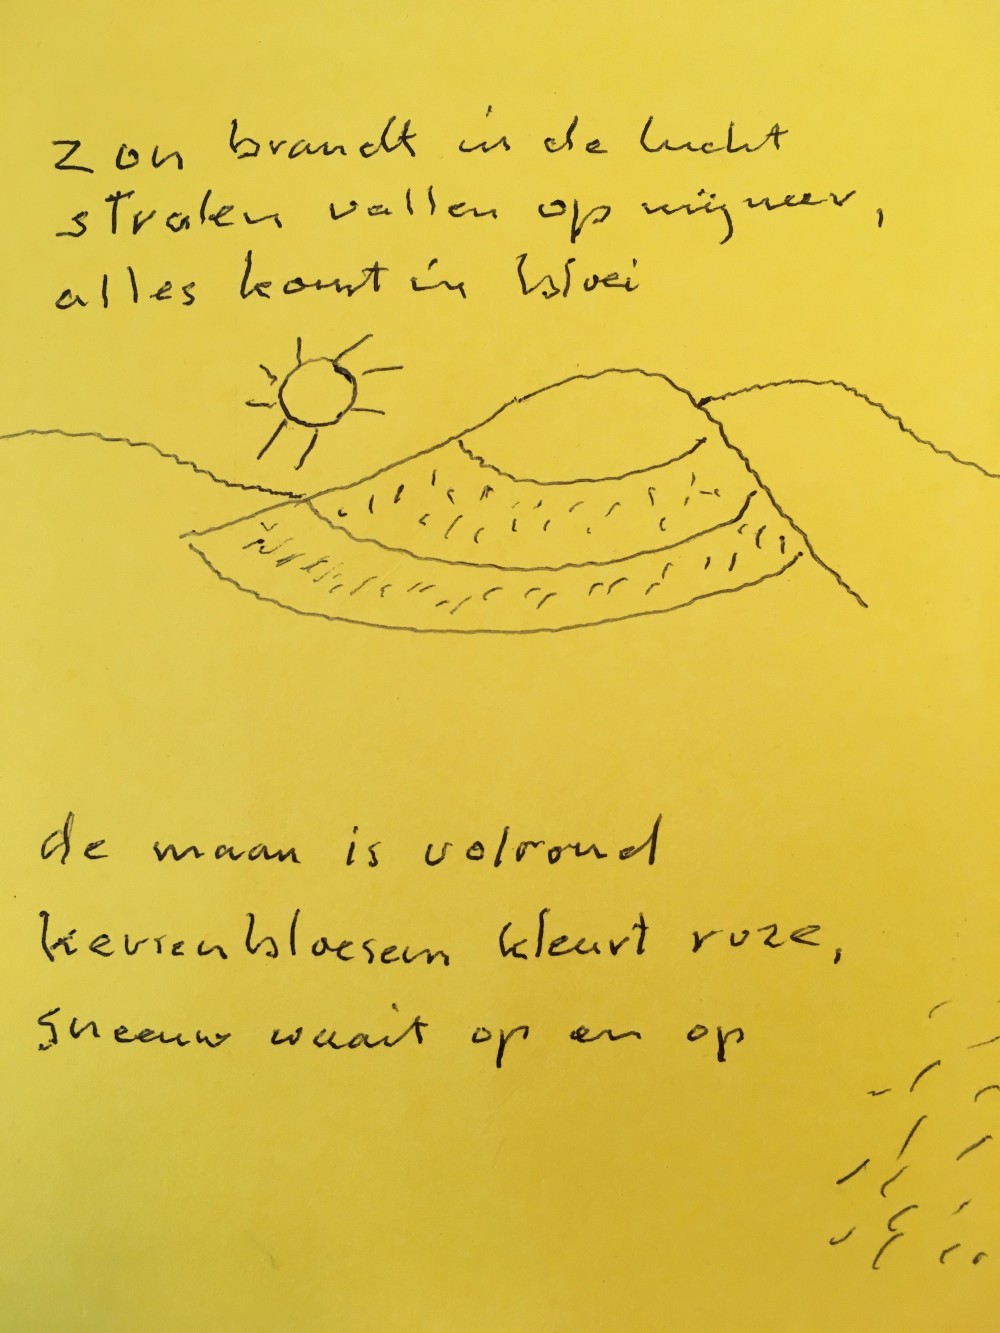 zon brandt in de lucht
stralen vallen op mij neer,
alles komt in bloei
de maan is volrond
kersenbloesem kleurt roze,
sneeuw waait op en op